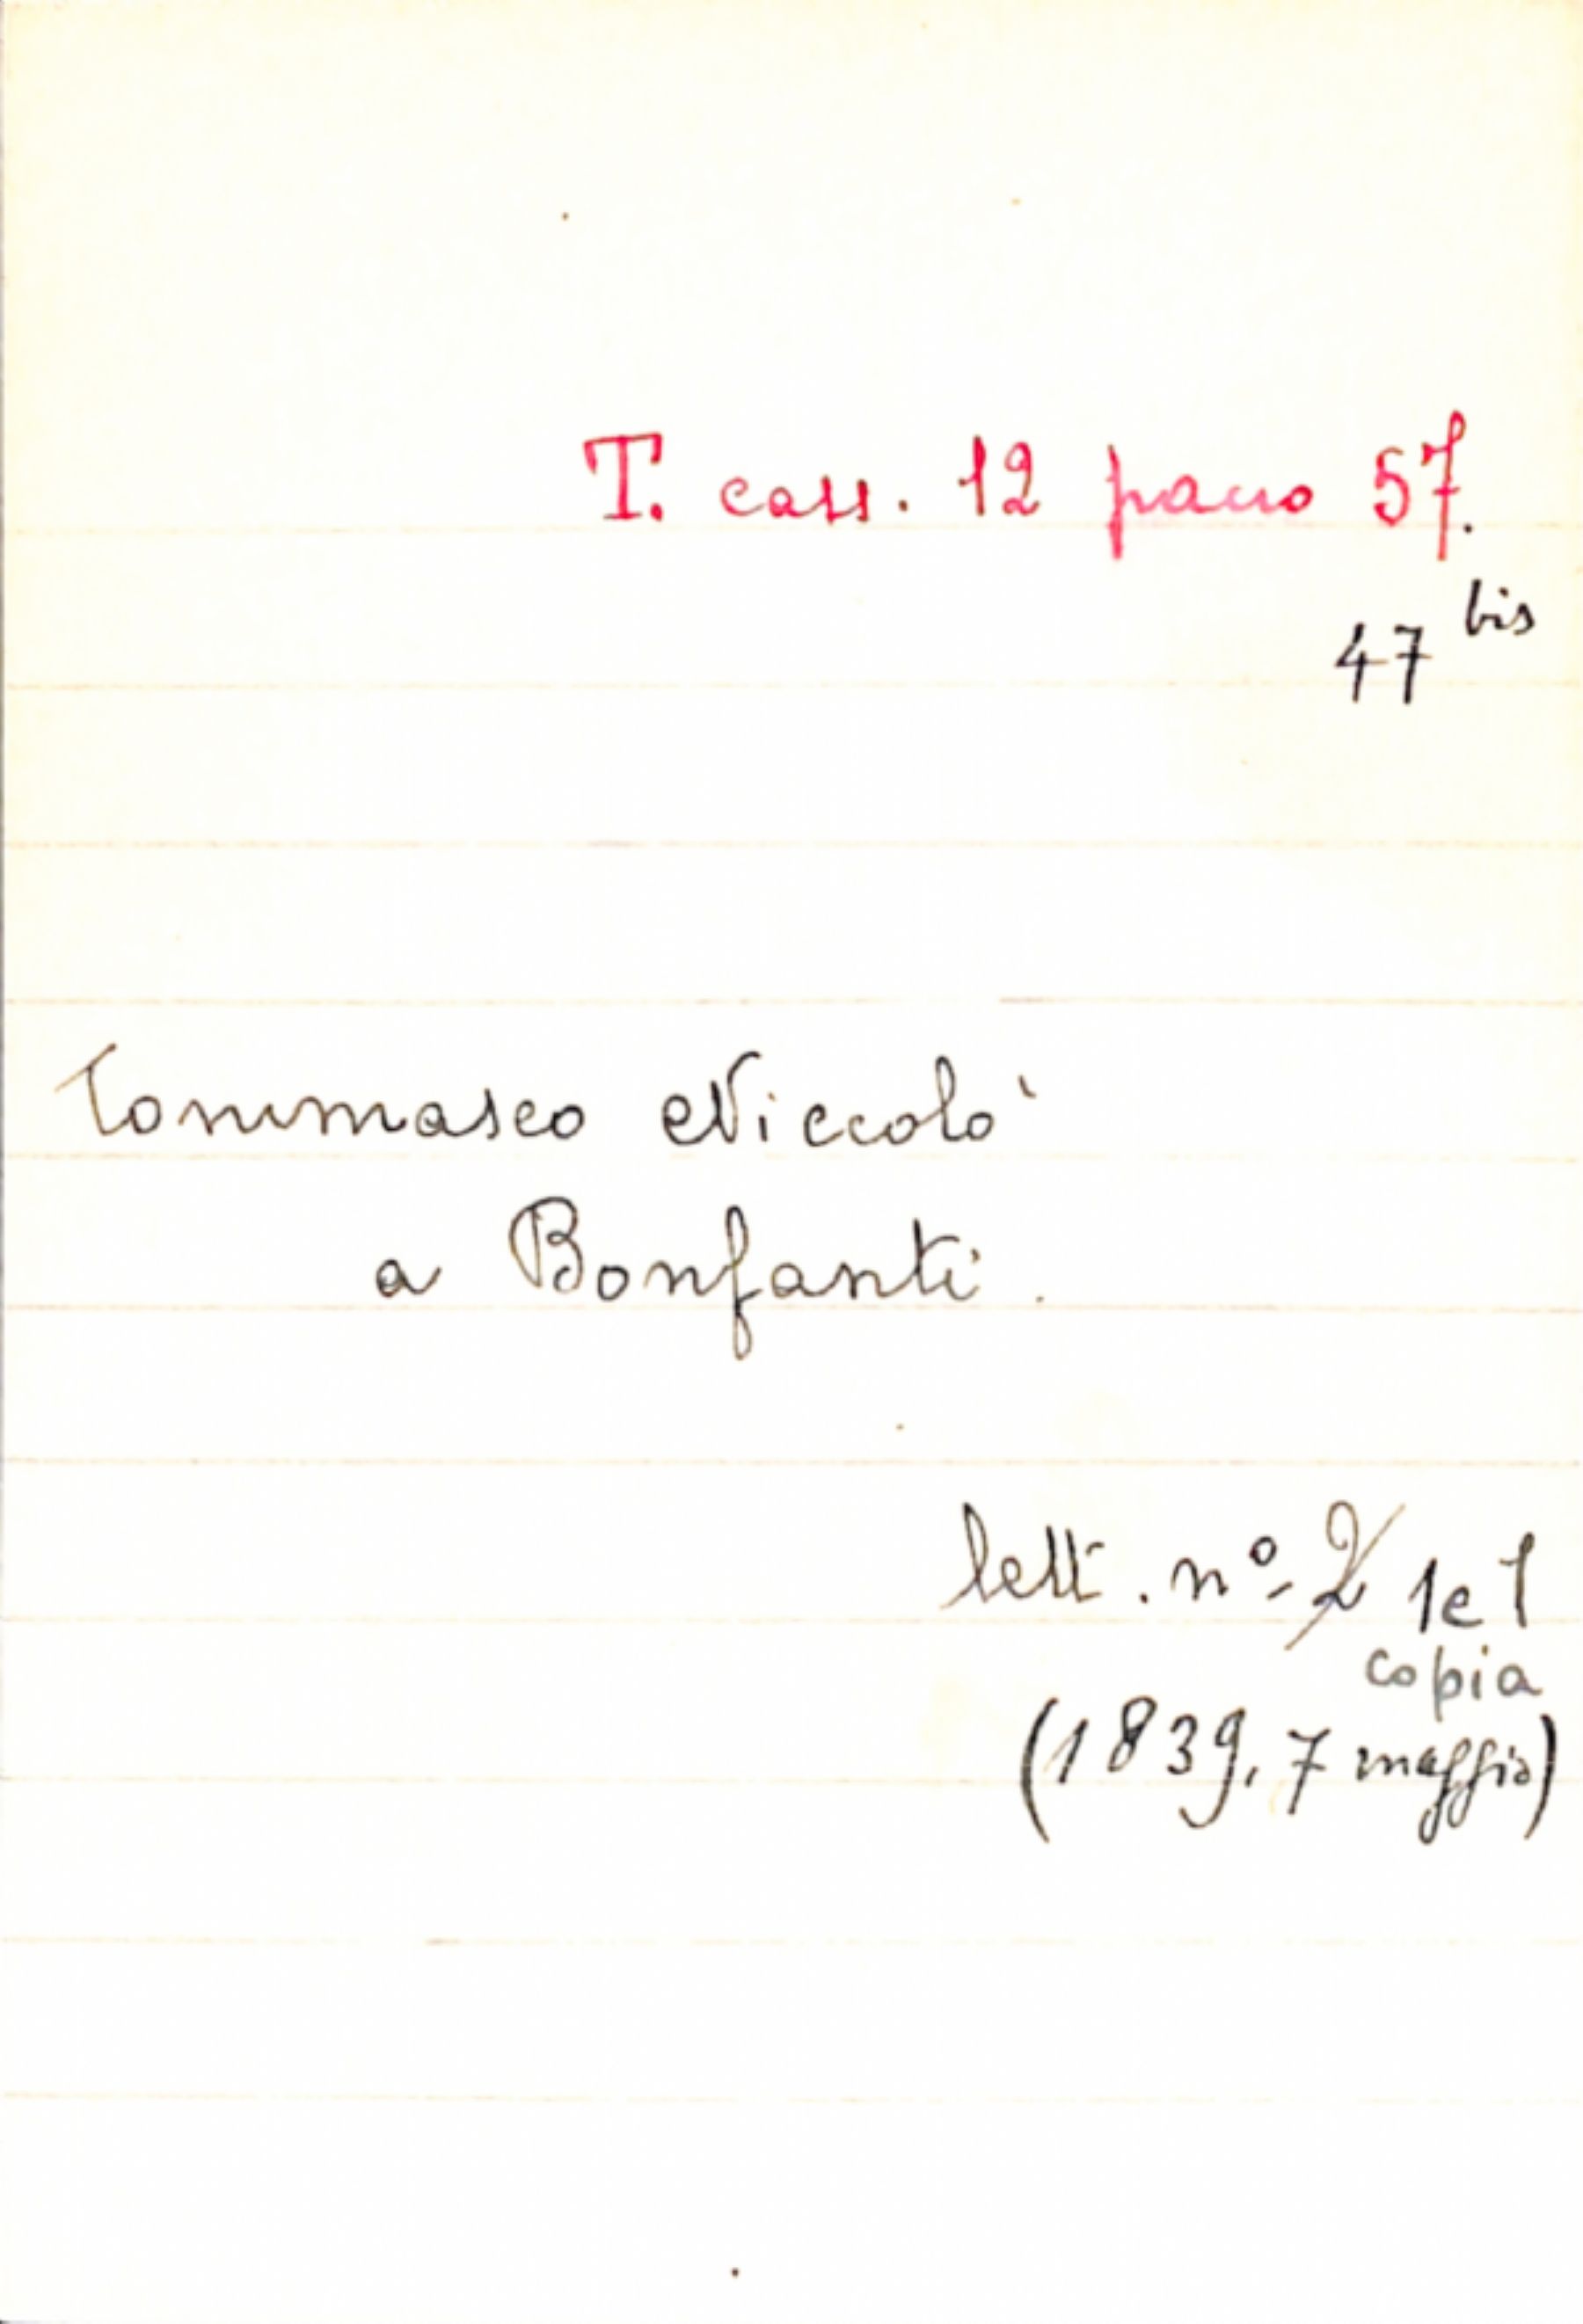 T. cass. 12 pacco 57.
47 bis
Tommaseo Niccolò
a Bonfanti.
lett. nº 2 1 e 1
copia
(1839, 7 maggio)